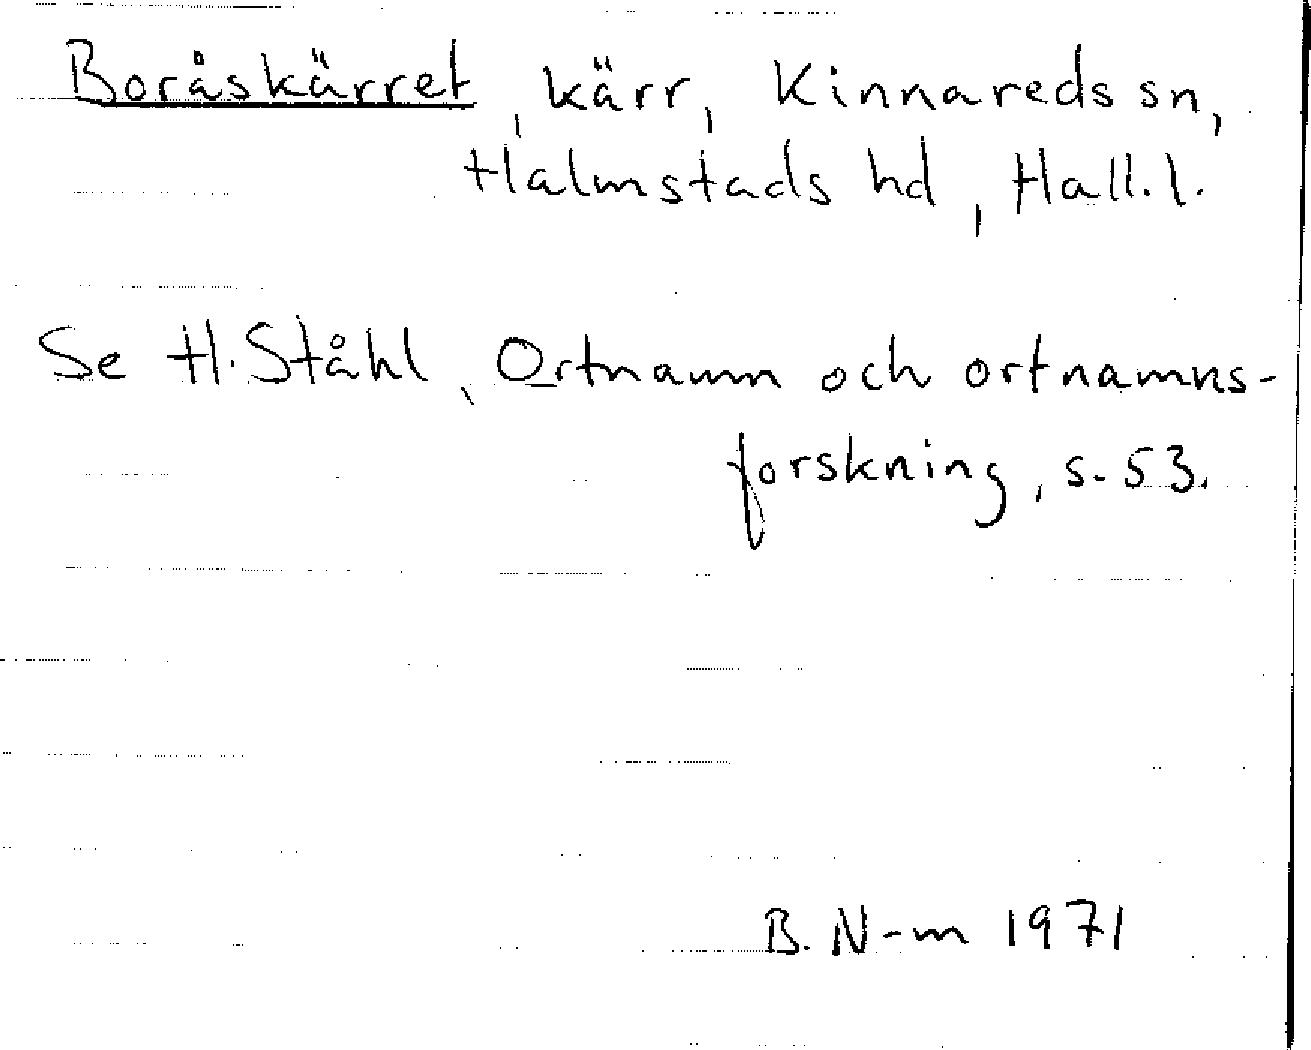 Boråskärret, kärr, Kinnareds sn,
Halmstads hd, Hall.l.
Se H. Ståhl, Ortnamn och ortnamns-
forskning, s. 53.
B. N-m 1971